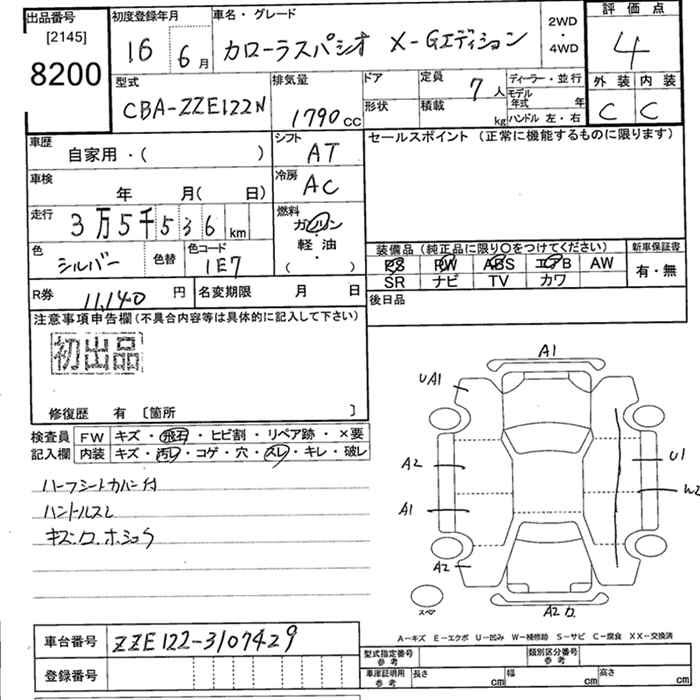 出品番号 [2145] 8200
初度登録年月 16 6月
車名・グレード カローラスパシオ X-Gエディション
2WD・4WD
評価点 4
外装 内装
C C
型式 CBA-ZZE122N
排気量 1790cc
ドア 形状
定員 7人
積載 kg
ディーラー・並行
モデル年式 年
ハンドル 左・右
車歴 自家用・( )
シフト AT
セールスポイント (正常に機能するものに限ります)
車検 年 月( 日)
冷房 AC
走行 3万5千536km
燃料 ガソリン・軽油・( )
色 シルバー 色替
色コード 1E7
装備品 (純正品に限り○をつけてください)
新車保証書
PS PW ABS エアB AW
有・無
SR ナビ TV カワ
R券 11,140円
名変期限 月 日
後日品
注意事項申告欄(不具合内容等は具体的に記入して下さい)
初出品
修復歴 有 〔箇所 〕
検査員記入欄
FW キズ・飛石・ヒビ割・リペア跡・×要
内装 キズ・汚レ・コゲ・穴・スレ・キレ・破レ
ハーフシートカバー付
ハンドルスレ
A1
UA1
A2
U1
W2
A1
A2
スペア
A2
A-キズ E-エクボ U-凹み W-補修跡 S-サビ C-腐食 XX-交換済
車台番号 ZZE122-3107429
型式指定番号 参考
類別区分番号 参考
登録番号
車庫証明用 参考 長さ cm 幅 cm 高さ cm